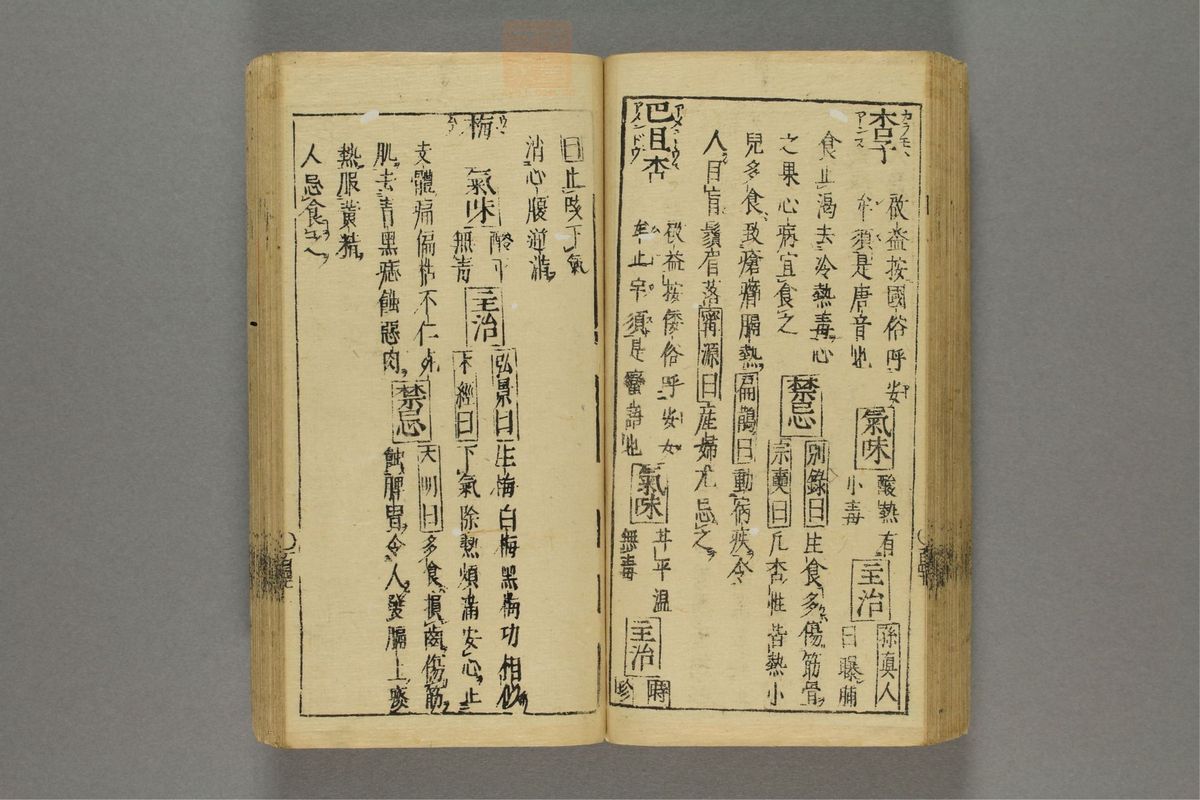 杏子 カラモヽ アンス
啟益按國俗呼安
牟須是唐音也
氣味 酸熱有
小毒
主治 孫真人
曰曝脯
食止渴去冷熱毒心
之果心病宜食之 禁忌 別錄曰生食多傷筋骨
宗奭曰凡杏性皆熱小
兒多食致瘡癰膈熱扁鵲曰動宿疾令
人目盲鬚眉落甯源曰産婦尤忌之
巴旦杏 アメンドウ
啟益按倭俗呼安女
牟止宇須是蠻語也
氣味 甘平温
無毒
主治 時
珍
曰止咳下氣
消心腹逆満
梅 ウメ
氣味 酸平
無毒
主治 弘景曰生梅白梅黑梅功相似
本經曰下氣除熱煩滿安心止
支體痛偏枯不仁死
肌去青黑痣蝕惡肉 禁忌 大明曰多食損齒傷筋
蝕脾胃令人發膈上痰
熱服黄精
人忌食之